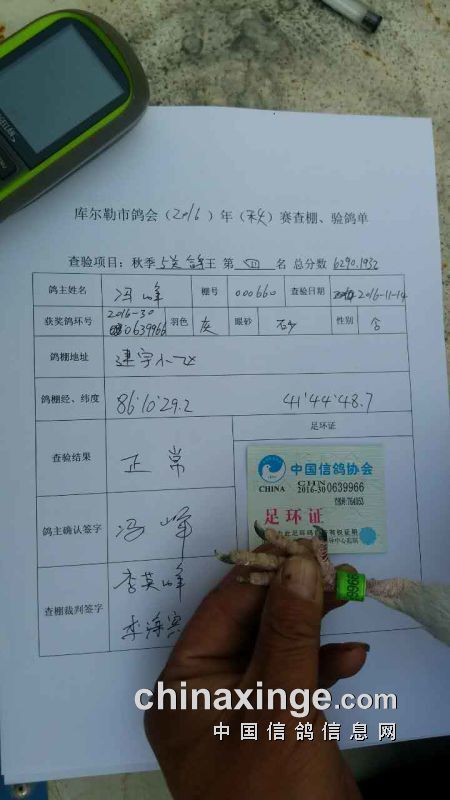 库尔勒市鸽会（2016）年（秋）赛查棚、验鸽单
查验项目：秋季 5关鸽王 第 四 名 总分数 6290.1932
鸽主姓名 冯峰 棚号 000660 查验日期 2016-11-14
获奖鸽环号 2016-30 0639966 羽色 灰 眼砂 砂 性别
鸽棚地址 建宇小区
鸽棚经、纬度 86°10'29.2 41°44'48.7
查验结果 正常 足环证
中国信鸽协会
CHINA CHN
2016-30 0639966
足环证
鸽主确认签字 冯峰
查棚裁判签字 李英峰
李海宾
chinaxinge.com
中国信鸽信息网